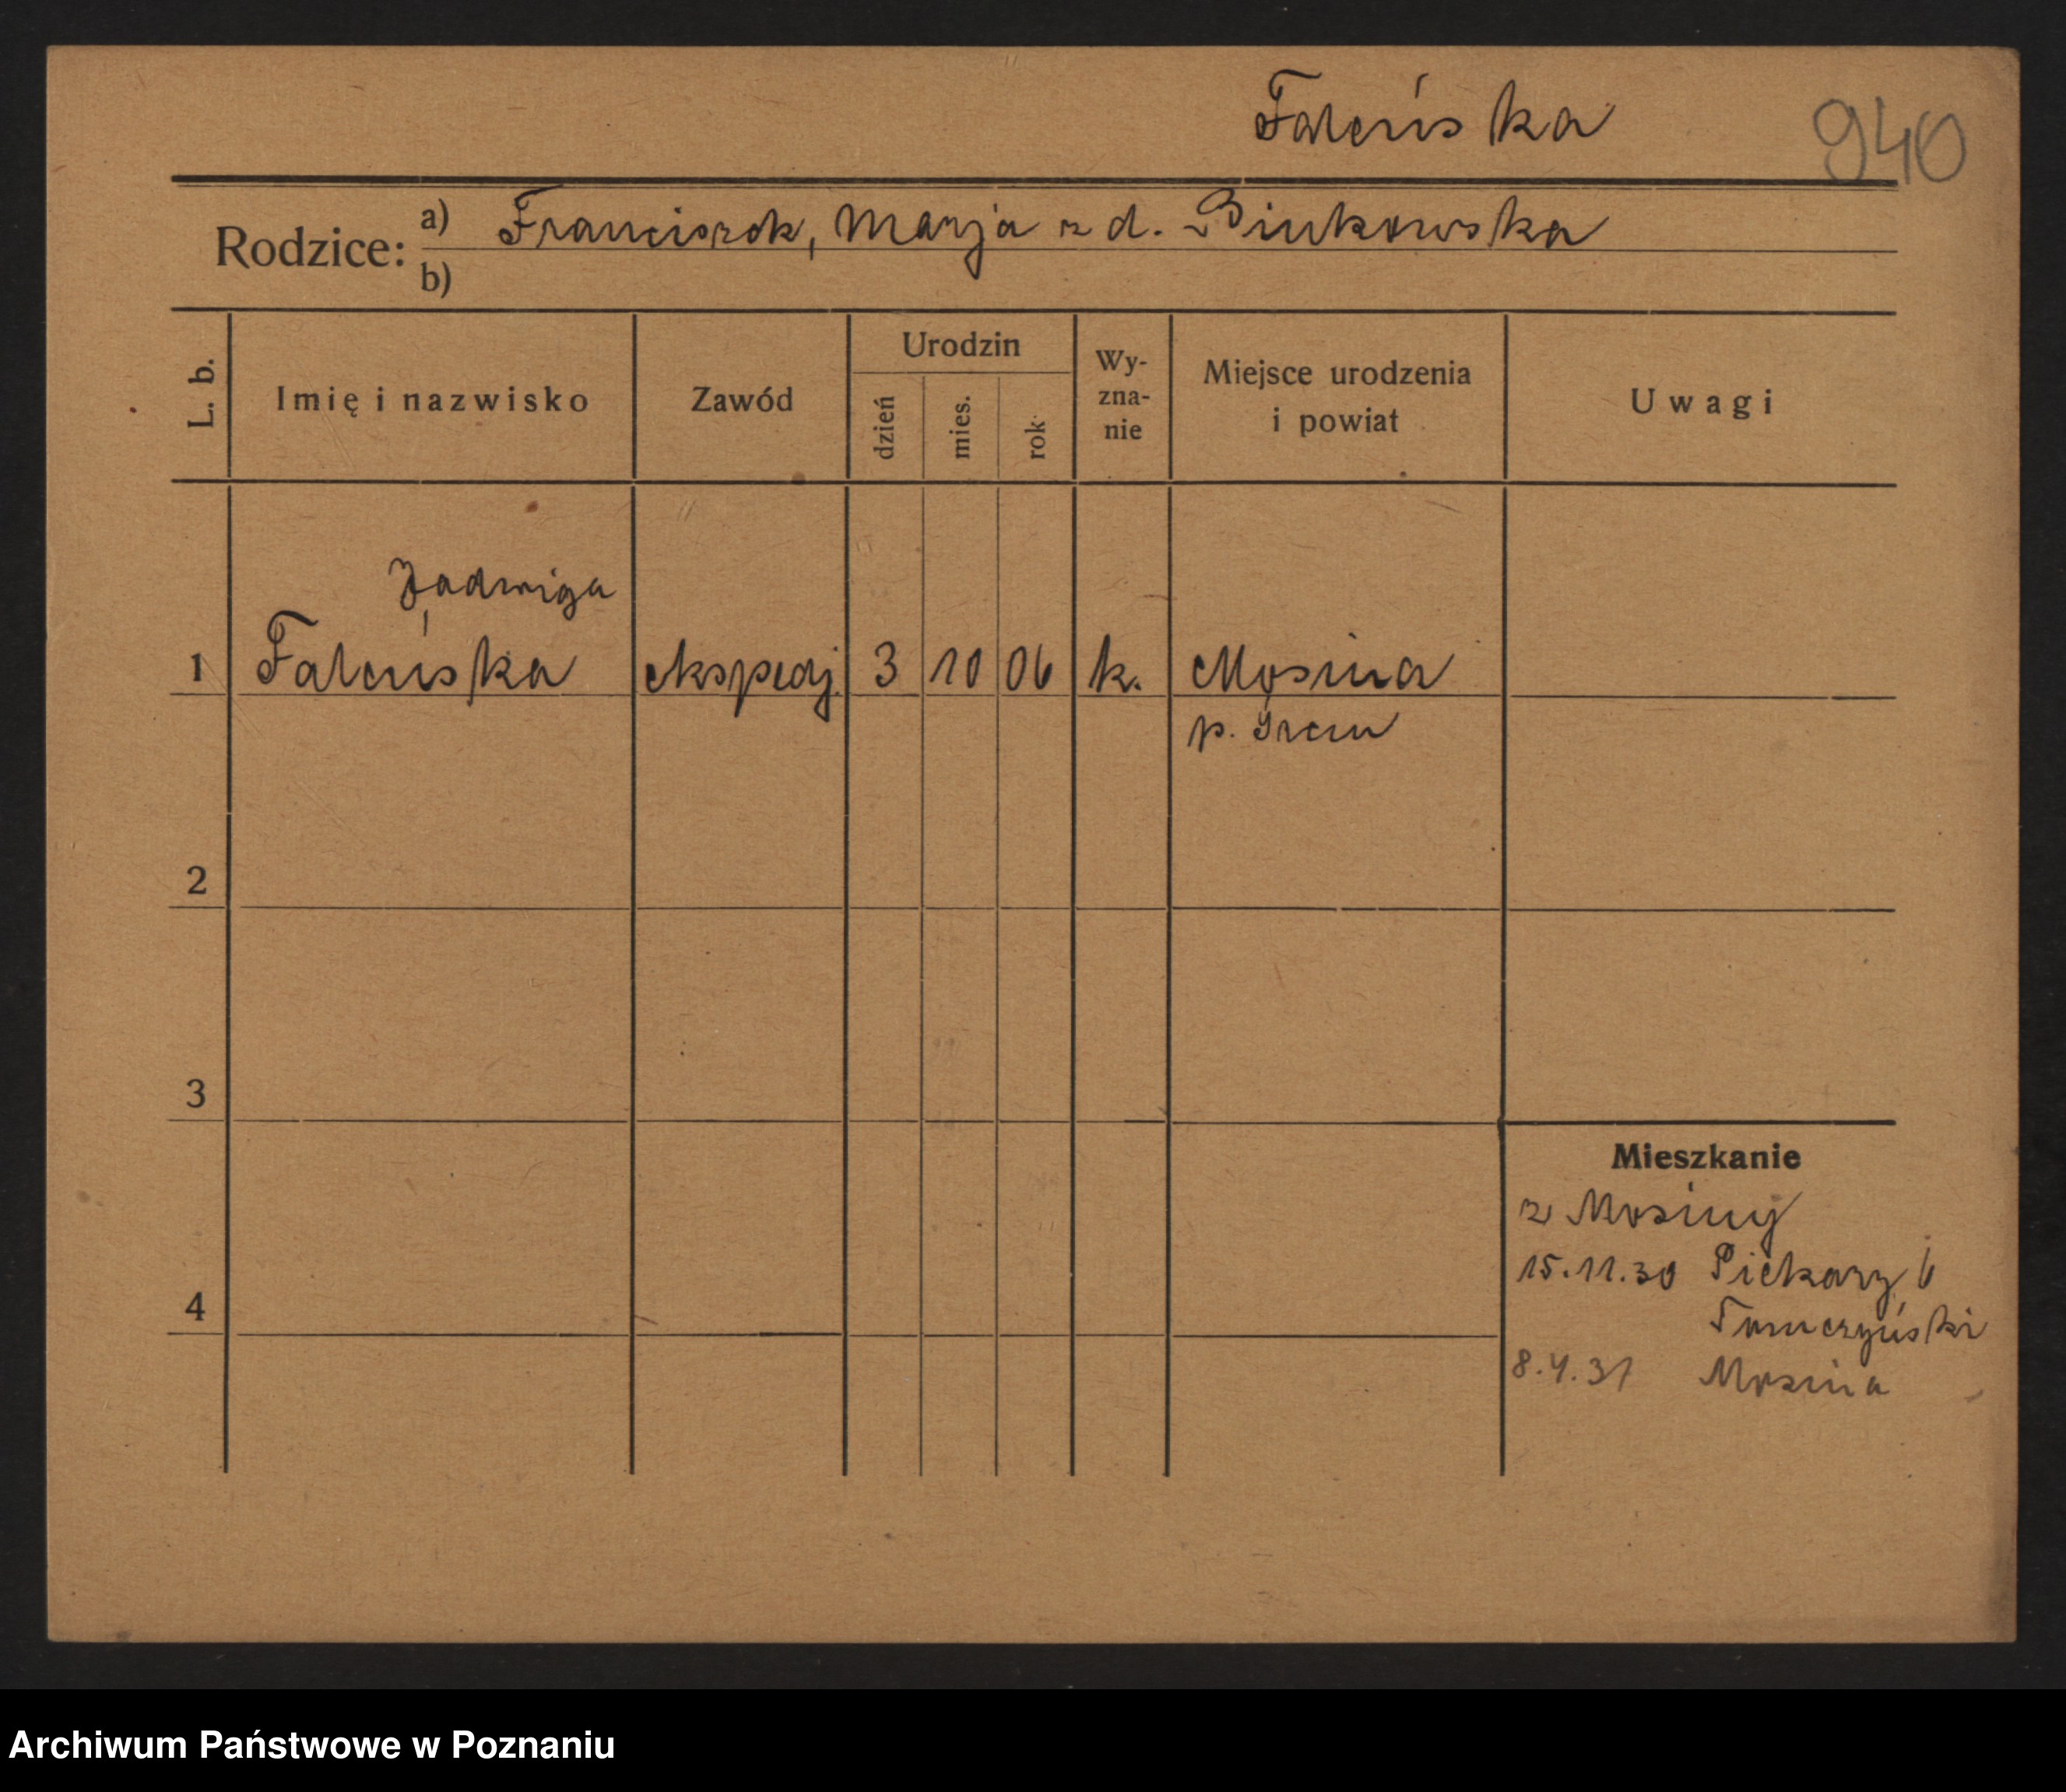 Faleńska
940
Rodzice: a) Franciszek, Marja z d. Binkowska
b)
L. b.
Imię i nazwisko
Zawód
Urodzin
dzień
mies.
rok
Wy-
zna-
nie
Miejsce urodzenia
i powiat
Uwagi
Jadwiga
1 Faleńska ekspedj. 3 10 06 k. Mosina
p. Śrem
2
3
4
Mieszkanie
z Mosiny
15.11.30 Piekary 6
8.4.31 Mosina
Archiwum Państwowe w Poznaniu